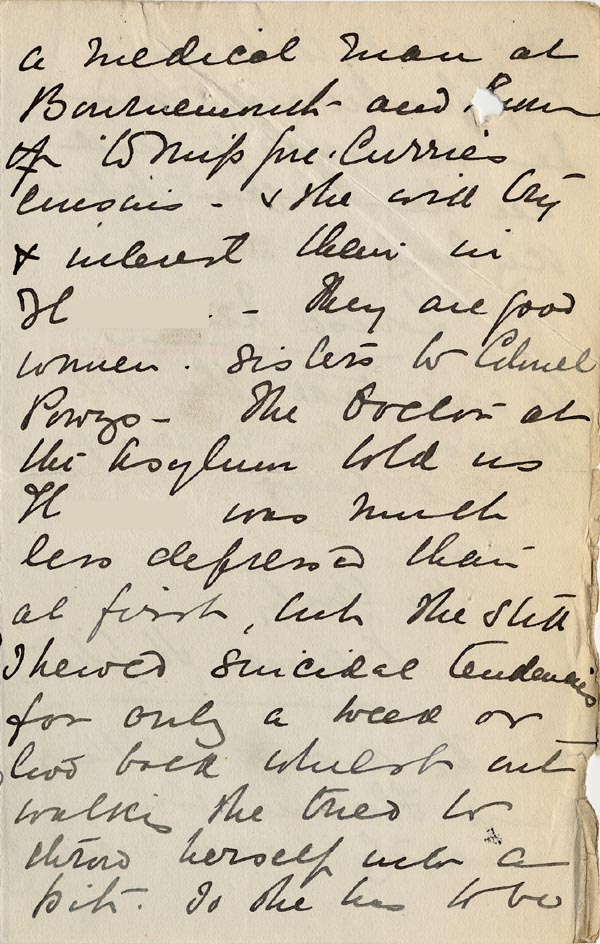 a medical man at
Bournemouth and
to Miss Currie's
cousins - & she will try
& interest them in
H - They are good
women. Sisters to Colonel
Powys - The Doctor at
the Asylum told us
H was much
less depressed than
at first, but she still
shewed suicidal tendencies
for only a week or
two back whilst out
walking she tried to
throw herself into a
pit. So she has to be